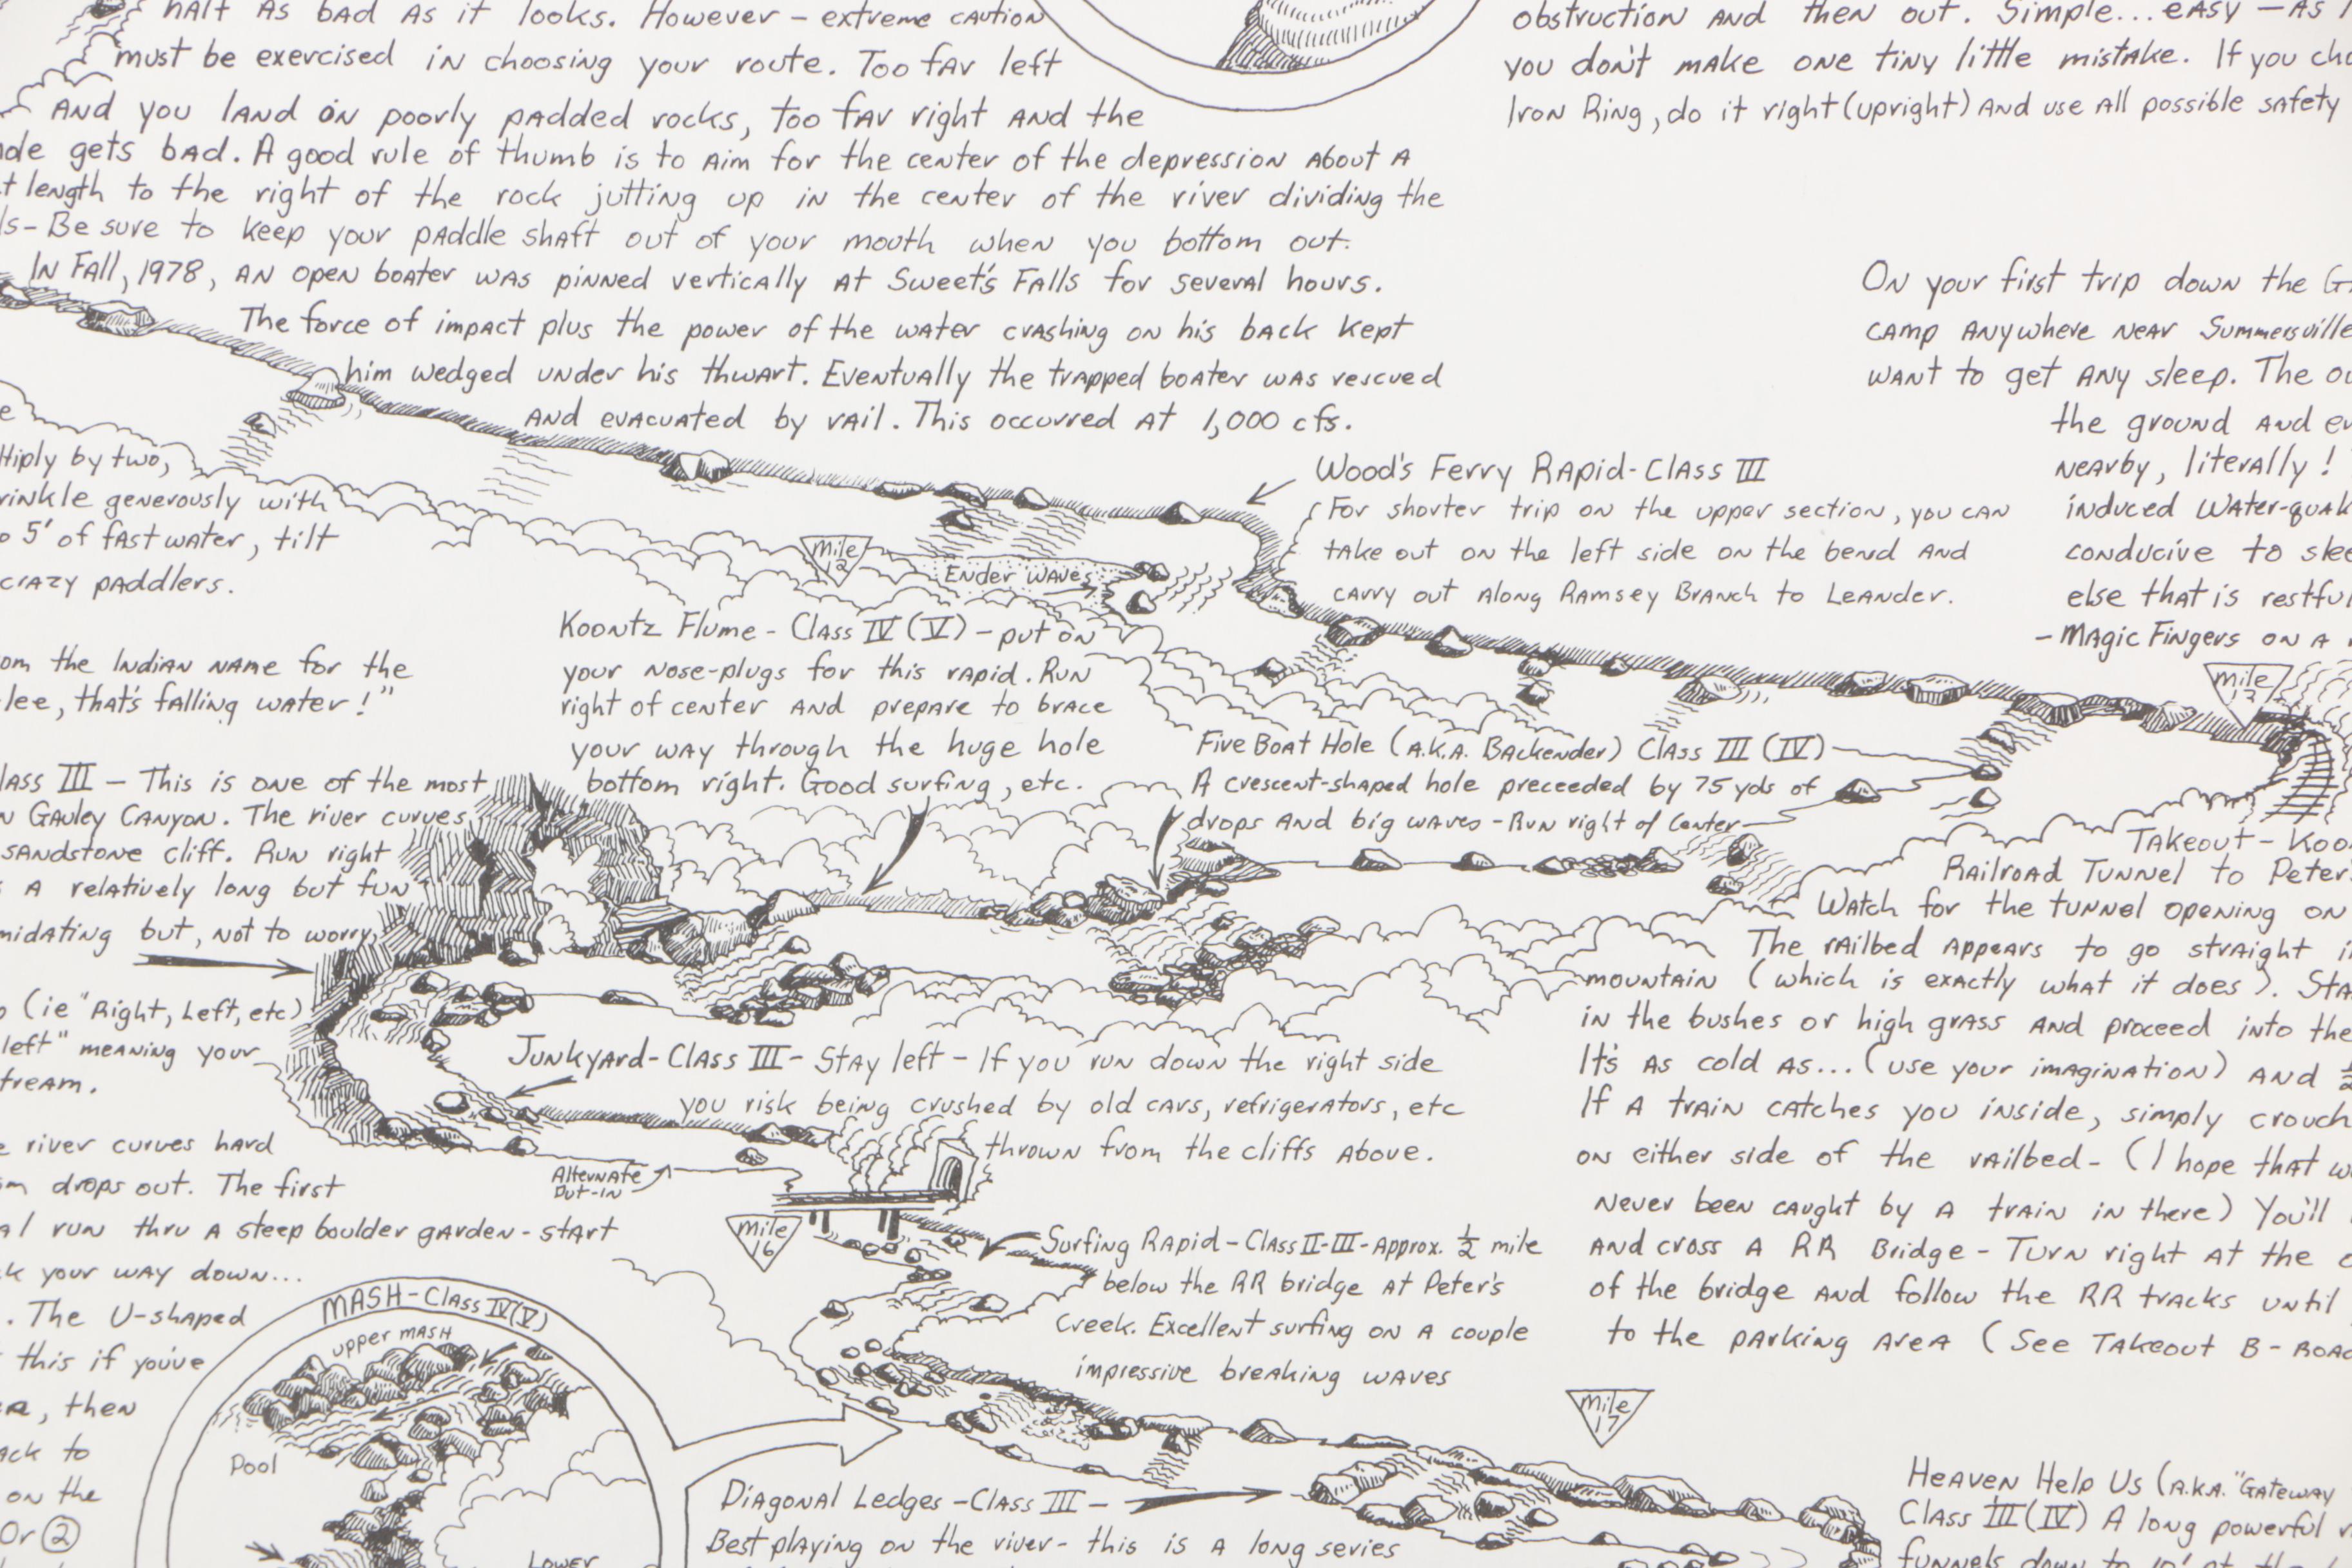 half as bad as it looks. However - extreme caution
must be exercised in choosing your route. Too far left
and you land on poorly padded rocks, too far right and the
gets bad. A good rule of thumb is to aim for the center of the depression about a
length to the right of the rock jutting up in the center of the river dividing the
- Be sure to keep your paddle shaft out of your mouth when you bottom out.
In Fall, 1978, an open boater was pinned vertically at Sweet's Falls for several hours.
The force of impact plus the power of the water crashing on his back kept
him wedged under his thwart. Eventually the trapped boater was rescued
and evacuated by rail. This occurred at 1,000 cfs.
obstruction and then out. Simple... easy - as
you don't make one tiny little mistake. If you
Iron Ring, do it right (upright) and use all possible safety
On your first trip down the
camp anywhere near Summersville
want to get any sleep. The
the ground and
nearby, literally!
induced Water-quak
conducive to
else that is restful
- Magic Fingers on a
by two,
generously with
5' of fast water, tilt
crazy paddlers.
Mile
12
Ender Waves
Wood's Ferry Rapid - Class III
For shorter trip on the upper section, you can
take out on the left side on the bend and
carry out along Ramsey Branch to Leander.
the Indian name for the
that's falling water!"
Koontz Flume - Class IV (V) - put on
your nose-plugs for this rapid. Run
right of center and prepare to brace
your way through the huge hole
bottom right. Good surfing, etc.
Mile
Five Boat Hole (A.K.A. Backender) Class III (IV)
A crescent-shaped hole preceeded by 75 yds of
drops and big waves - Run right of center
III - This is one of the most
Gauley Canyon. The river curves
sandstone cliff. Run right
a relatively long but fun
but, not to worry,
(ie "Right, Left, etc)
left" meaning your
Takeout -
Railroad Tunnel to
Watch for the tunnel opening on
The railbed appears to go straight
mountain (which is exactly what it does).
in the bushes or high grass and proceed into the
It's as cold as... (use your imagination) and
If a train catches you inside, simply crouch
on either side of the railbed - (I hope that
never been caught by a train in there) You'll
and cross a RR Bridge - Turn right at the
of the bridge and follow the RR tracks until
to the parking area (See Takeout B -
Junkyard - Class III - Stay left - If you run down the right side
you risk being crushed by old cars, refrigerators, etc
thrown from the cliffs above.
Alternate
Put-in
Mile
16
river curves hard
drops out. The first
run thru a steep boulder garden - start
your way down...
. The U-shaped
this if you've
then
to
on the
Or 2
Surfing Rapid - Class II-III - Approx. 1/2 mile
below the RR bridge at Peter's
Creek. Excellent surfing on a couple
impressive breaking waves
Mile
17
MASH - Class IV (V)
upper MASH
Pool
Lower
Diagonal Ledges - Class III -
Best playing on the river - this is a long series
Heaven Help Us (A.K.A. "Gateway
Class III (IV) A long powerful
funnels down to